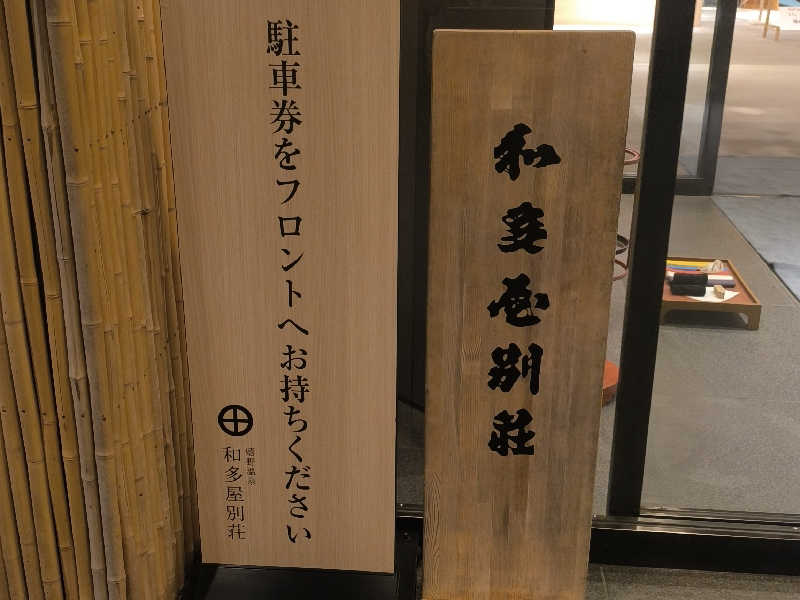 和多屋別荘
駐車券をフロントへお持ちください
嬉野温泉
和多屋別荘